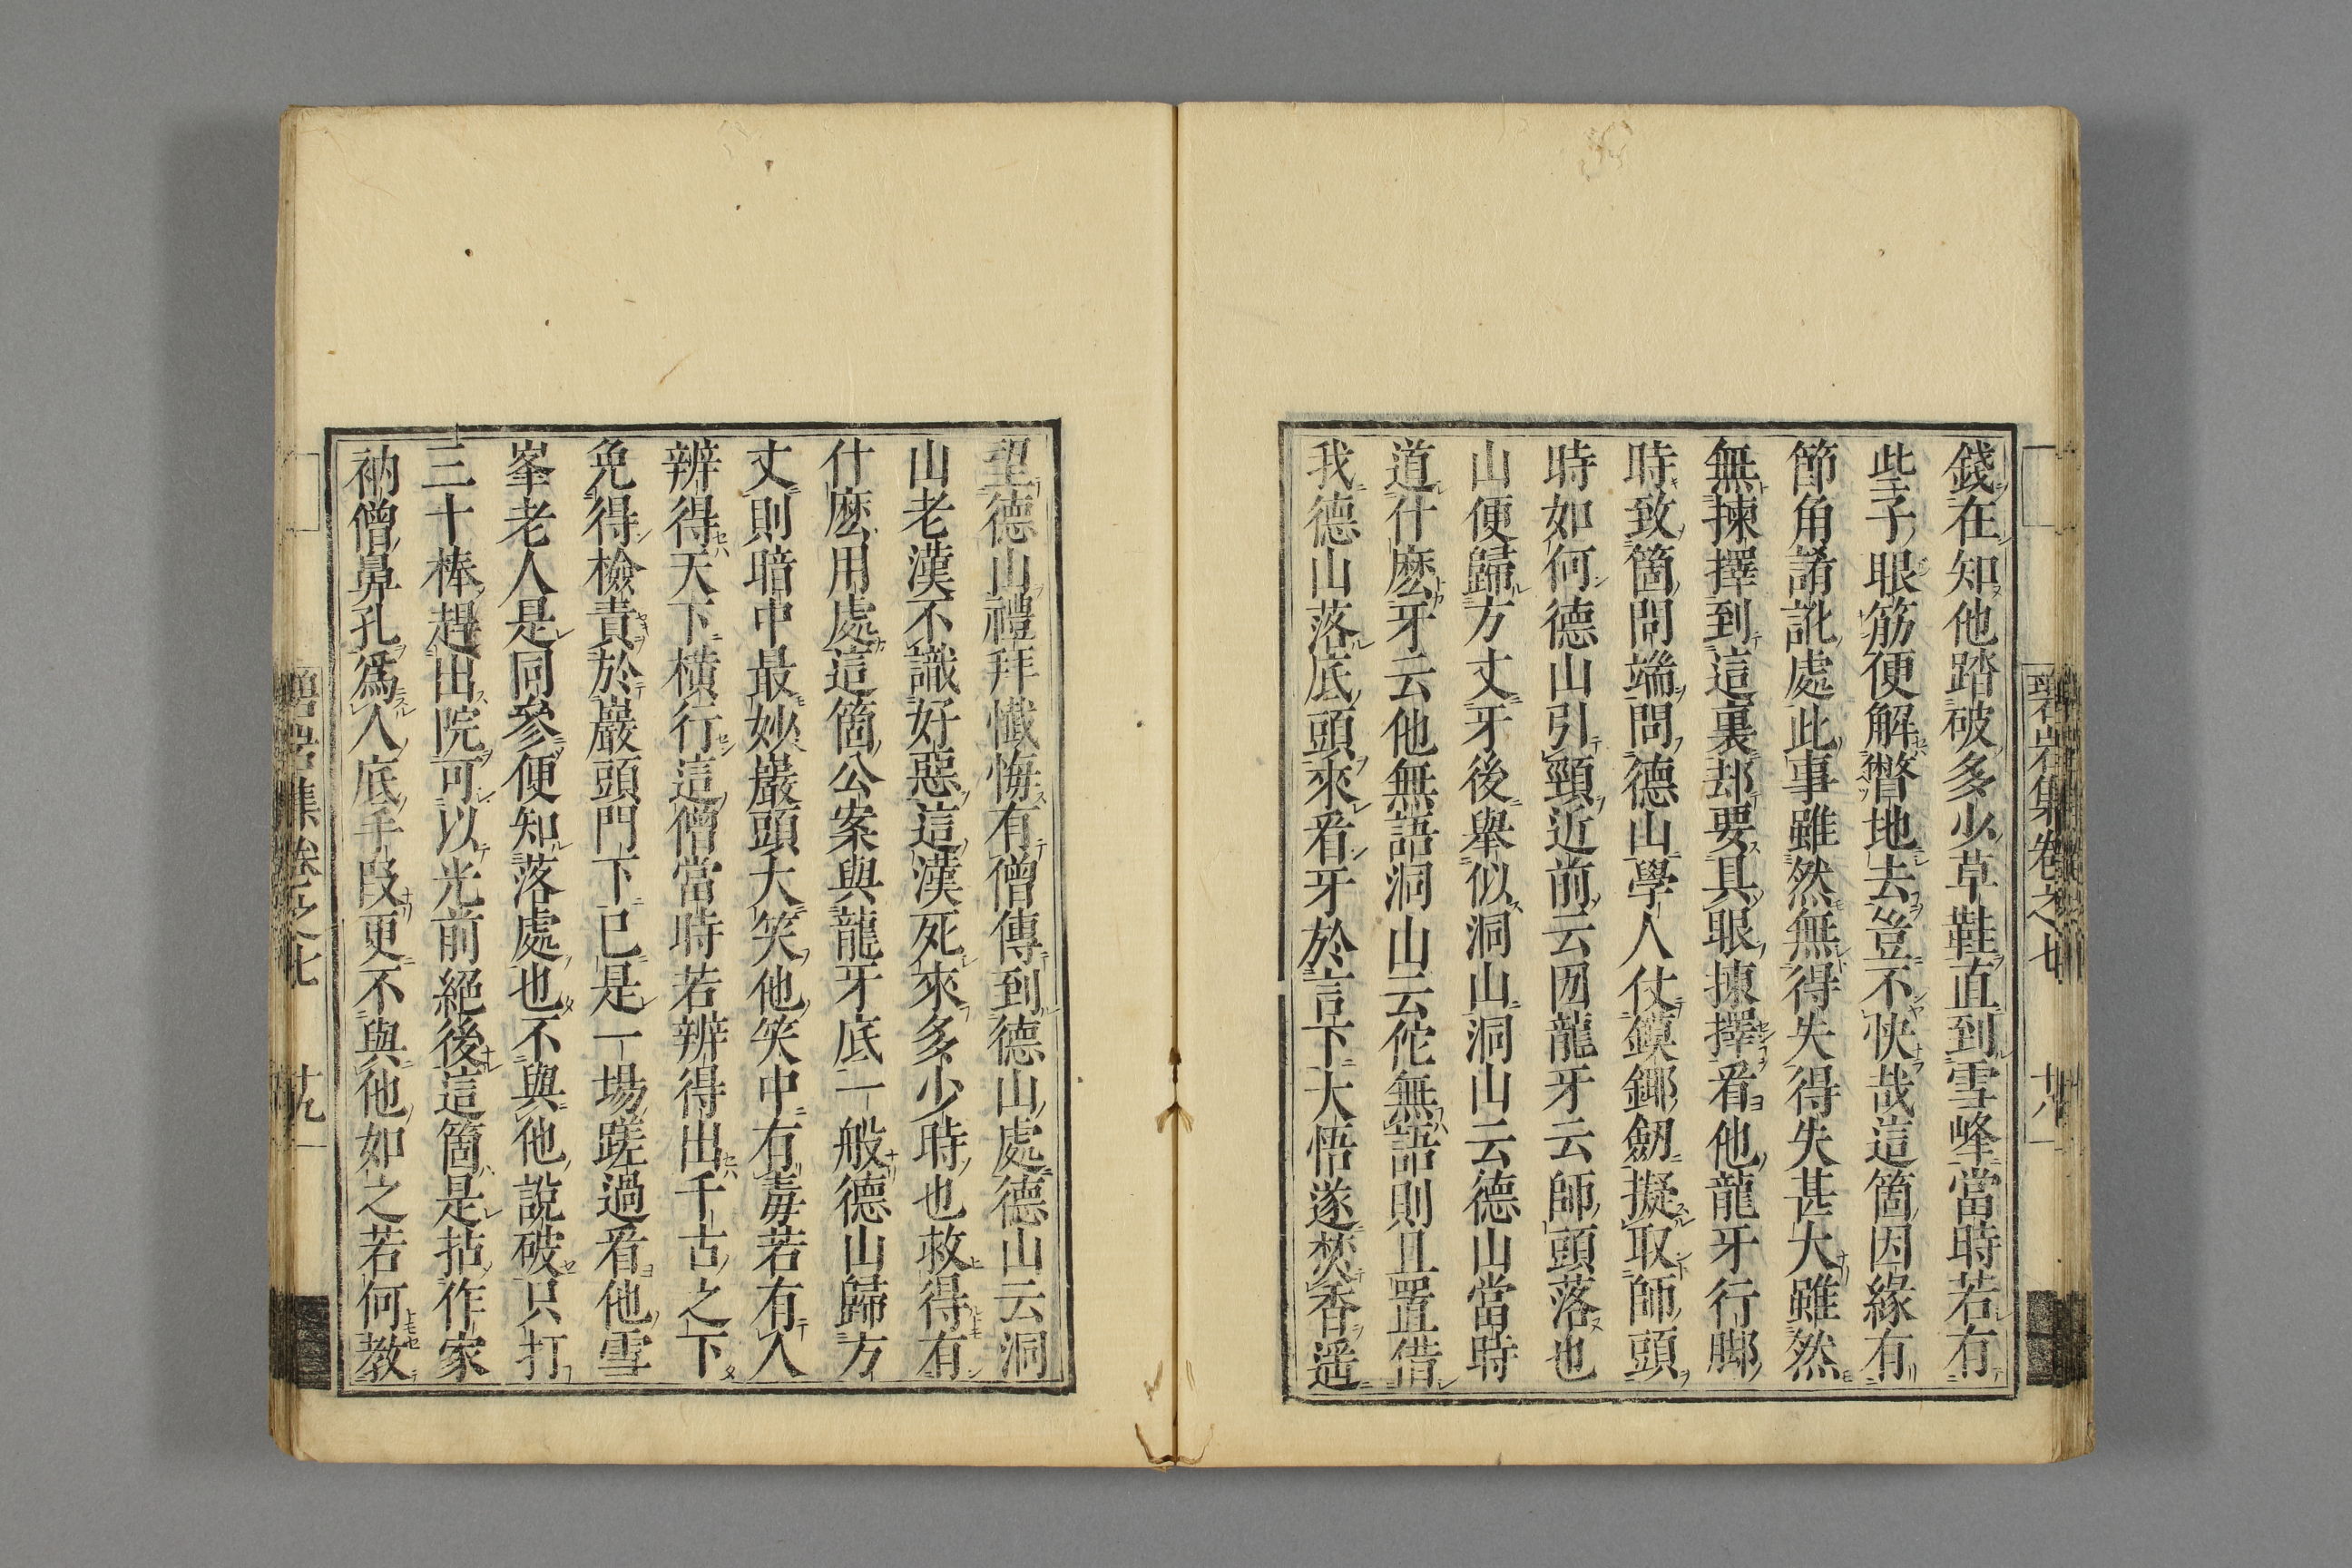 碧岩集卷之七 十八
錢在知他踏破多少草鞋直到雪峰當時若有
些子眼筋便解瞥地去豈不快哉這箇因緣有
節角誵訛處此事雖然無得失得失甚大雖然
無揀擇到這裏却要具眼揀擇看他龍牙行脚
時致箇問端問德山學人仗鏌鎁劒擬取師頭
時如何德山引頸近前云㘞龍牙云師頭落也
山便歸方丈牙後舉似洞山洞山云德山當時
道什麽牙云他無語洞山云佗無語則且置借
我德山落底頭來看牙於言下大悟遂焚香遥
望德山禮拜懺悔有僧傳到德山處德山云洞
山老漢不識好惡這漢死來多少時也救得有
什麽用處這箇公案與龍牙底一般德山歸方
丈則暗中最妙巖頭大笑他笑中有毒若有人
辨得天下橫行這僧當時若辨得出千古之下
免得檢責於巖頭門下已是一場蹉過看他雪
峯老人是同參便知落處也不與他說破只打
三十棒趕出院可以光前絕後這箇是拈作家
衲僧鼻孔爲人底手段更不與他如之若何教
碧岩集卷之七 十九